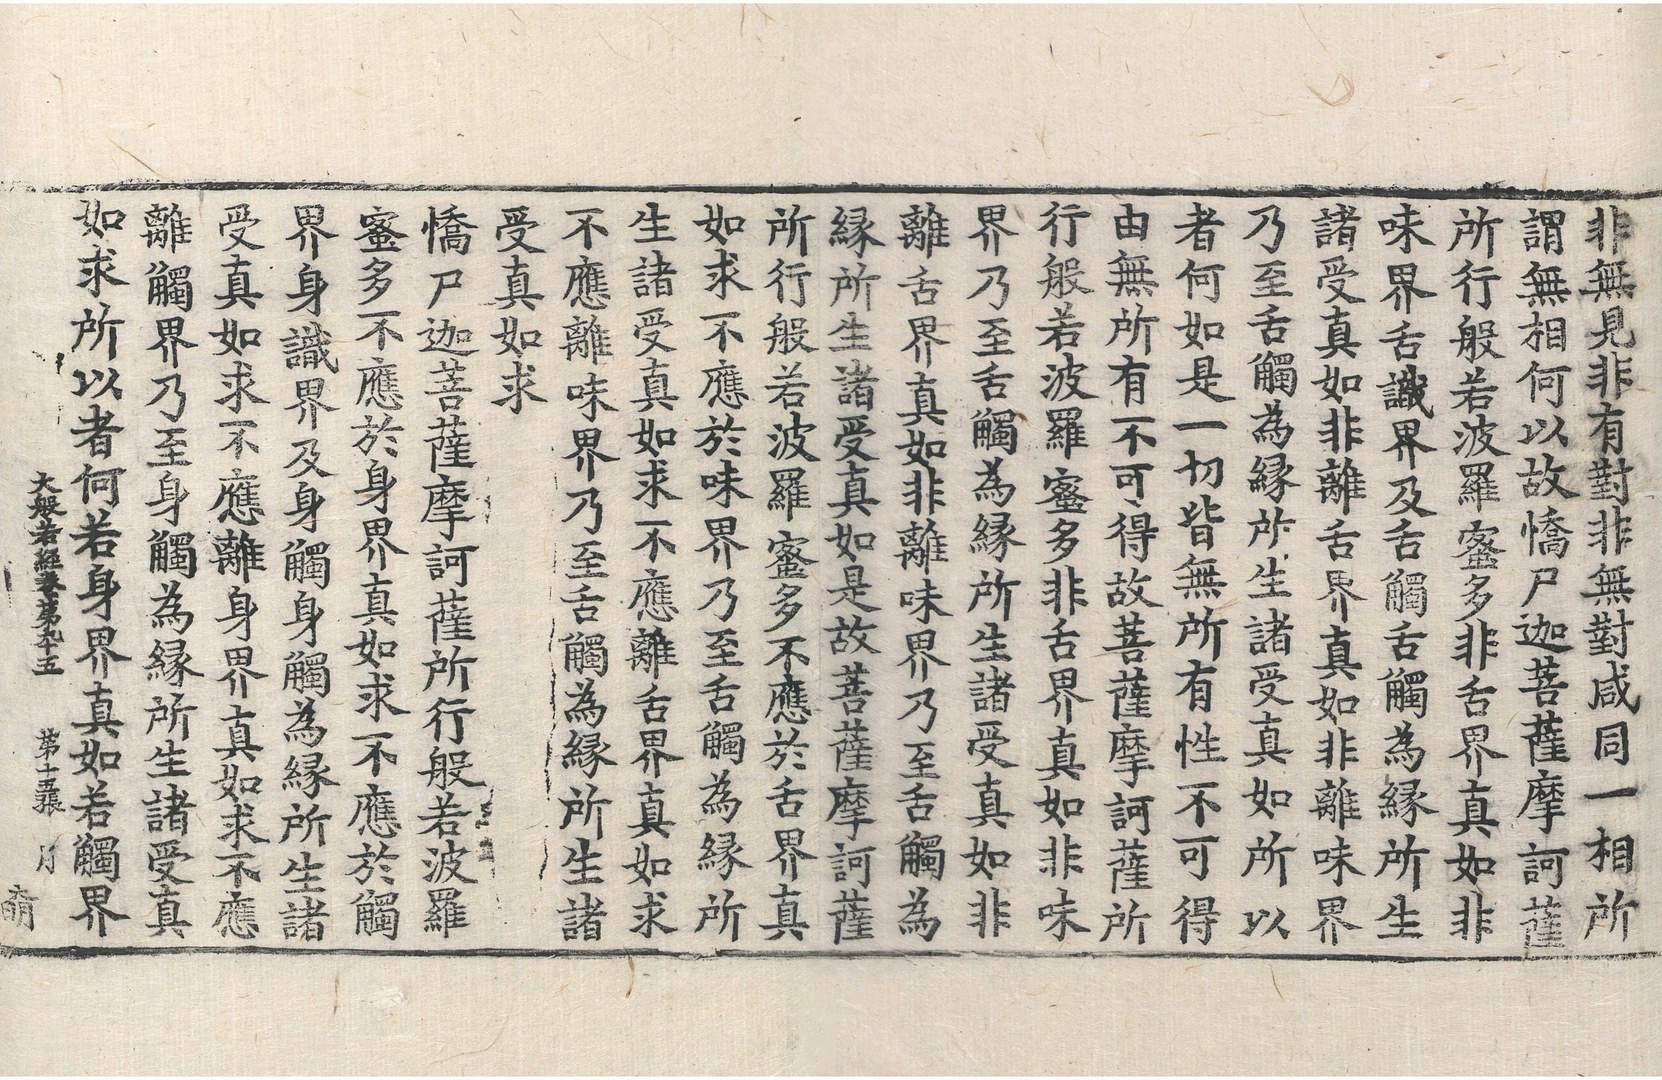 非無見非有對非無對咸同一相所
謂無相何以故憍尸迦菩薩摩訶薩
所行般若波羅蜜多非舌界真如非
味界舌識界及舌觸舌觸為緣所生
諸受真如非離舌界真如非離味界
乃至舌觸為緣所生諸受真如所以
者何如是一切皆無所有性不可得
由無所有不可得故菩薩摩訶薩所
行般若波羅蜜多非舌界真如非味
界乃至舌觸為緣所生諸受真如非
離舌界真如非離味界乃至舌觸為
緣所生諸受真如是故菩薩摩訶薩
所行般若波羅蜜多不應於舌界真
如求不應於味界乃至舌觸為緣所
生諸受真如求不應離舌界真如求
不應離味界乃至舌觸為緣所生諸
受真如求
憍尸迦菩薩摩訶薩所行般若波羅
蜜多不應於身界真如求不應於觸
界身識界及身觸身觸為緣所生諸
受真如求不應離身界真如求不應
離觸界乃至身觸為緣所生諸受真
如求所以者何若身界真如若觸界
大般若經卷第九十五 第十五張 月